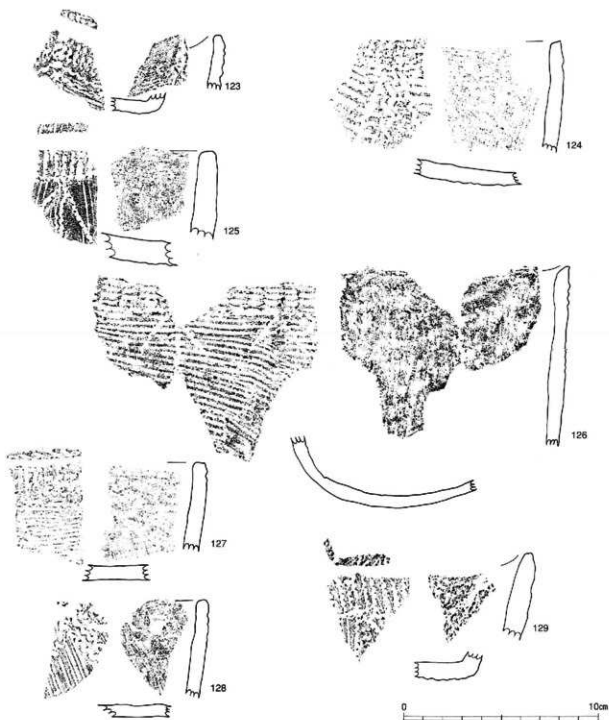 123
124
125
126
127
128
129
0 10cm